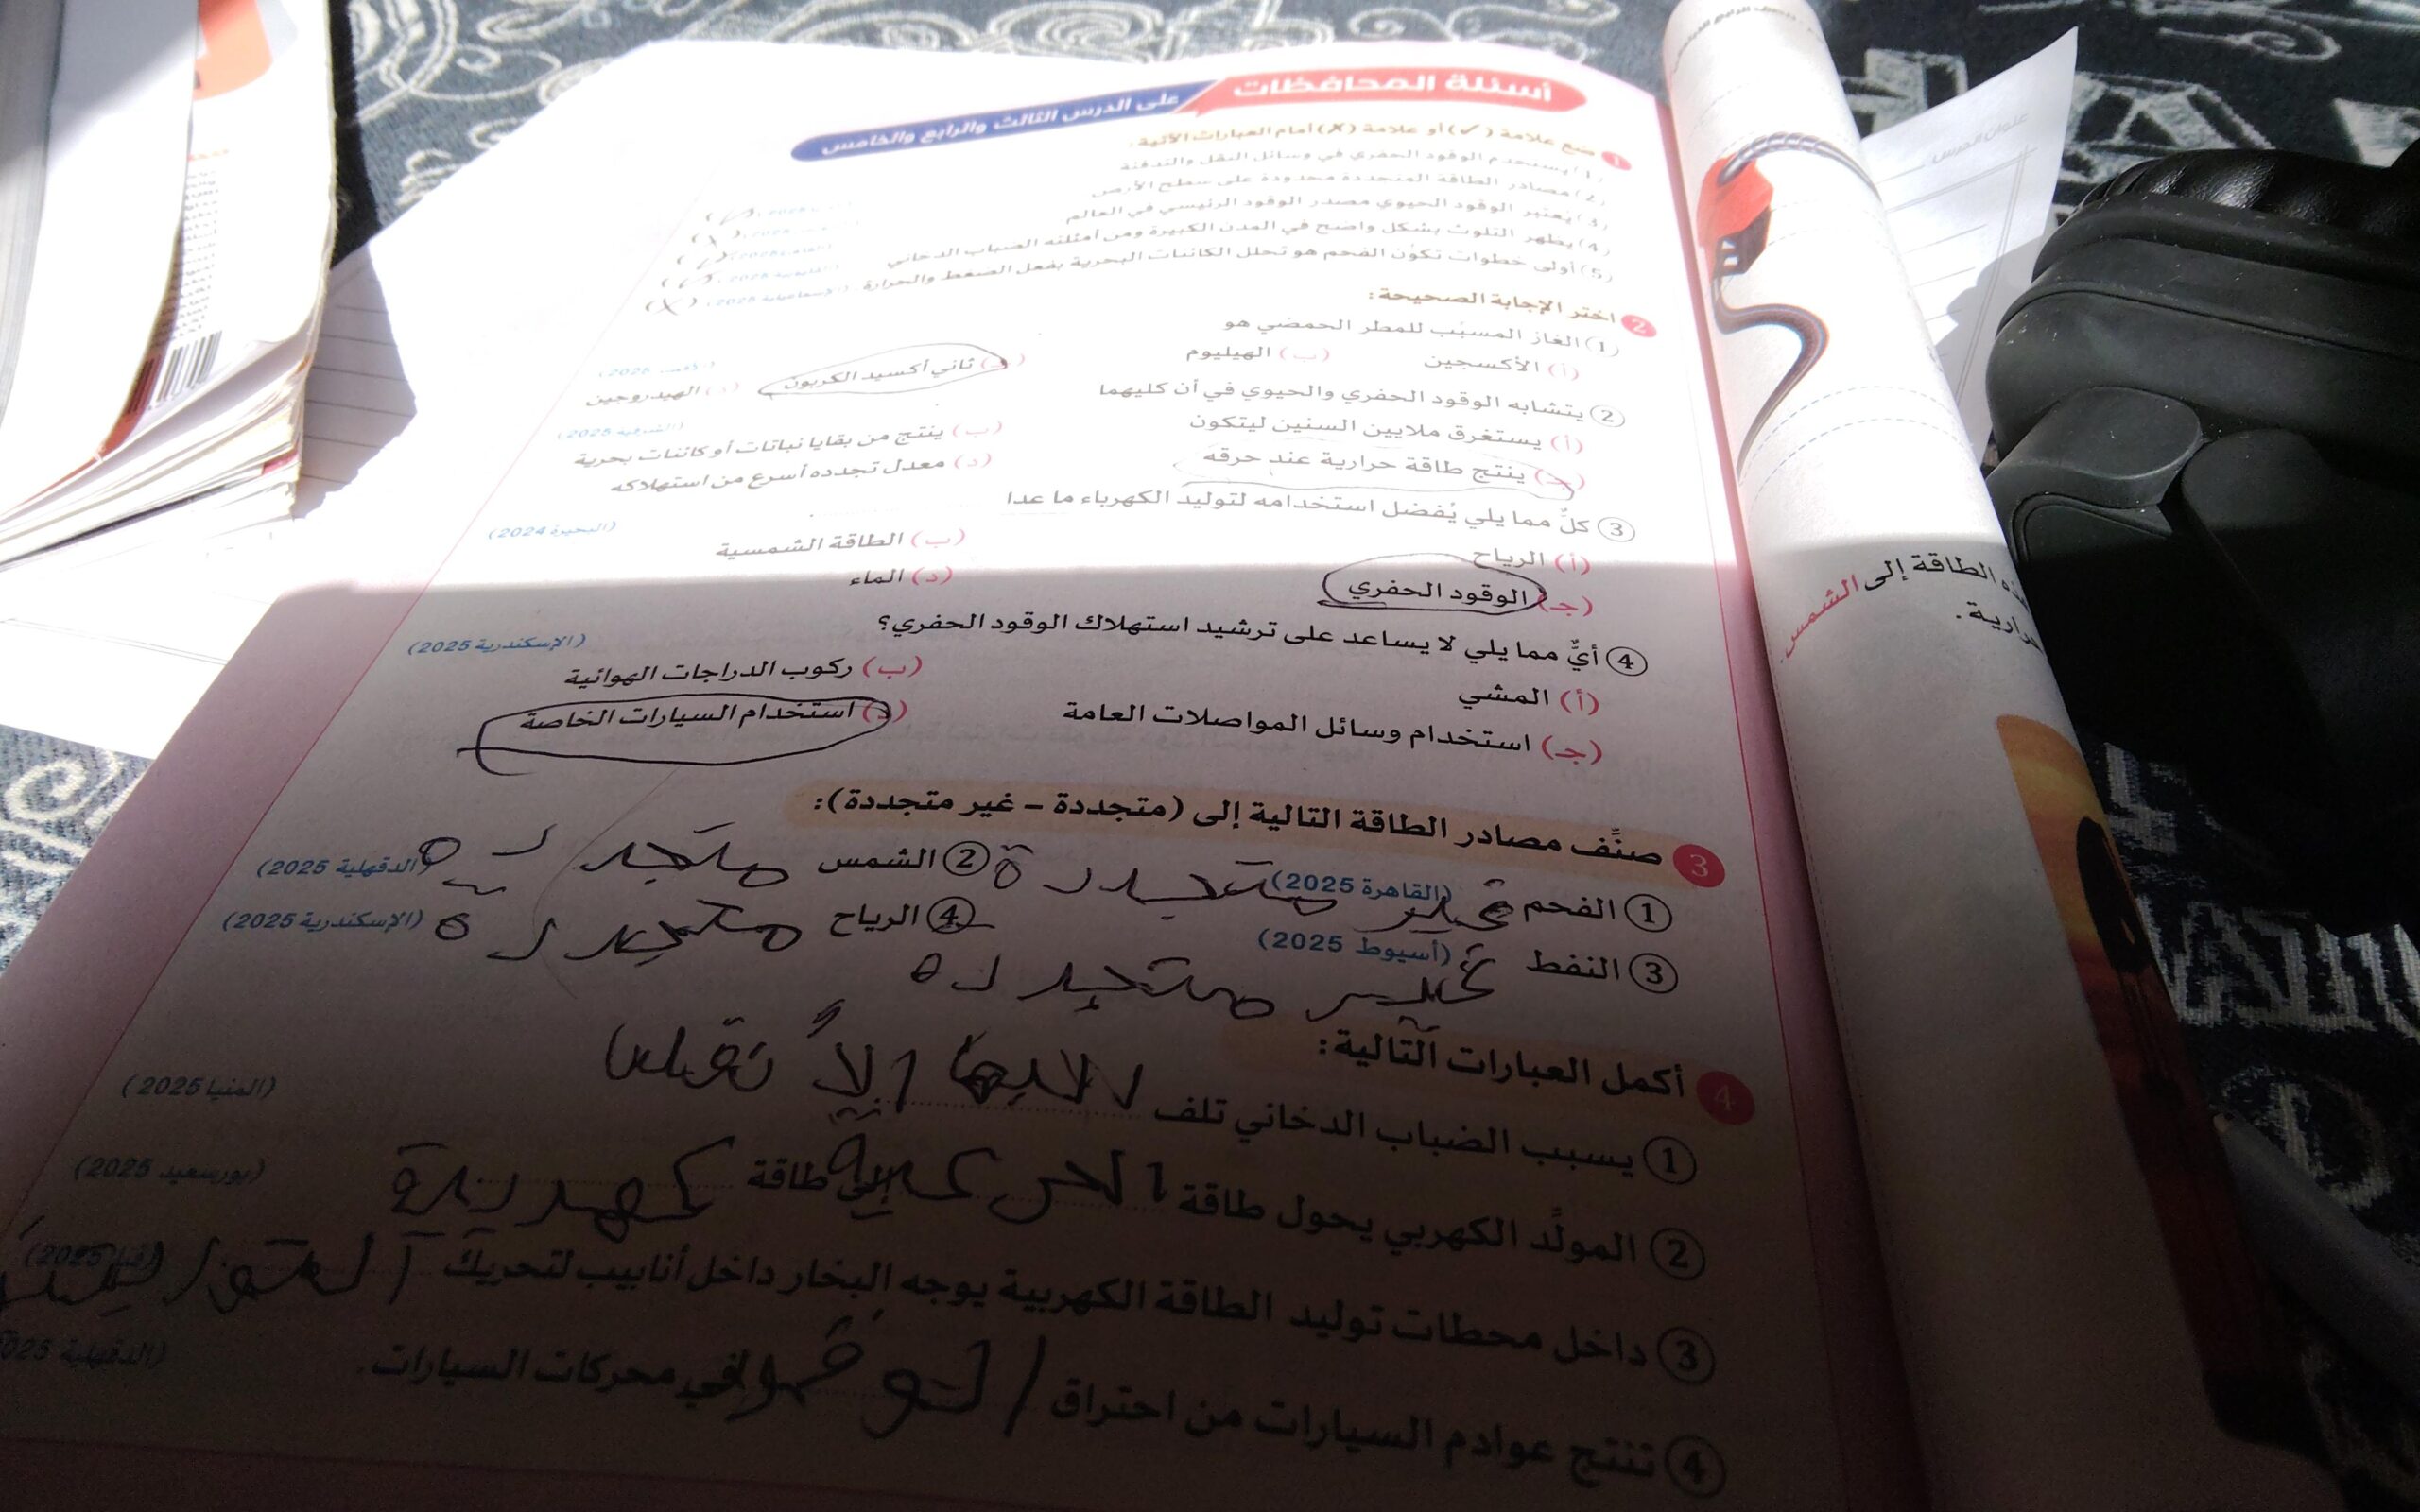 أسئلة المحافظات على الدرس الثالث والرابع والخامس
1 ضع علامة (✓) أو علامة (✗) أمام العبارات الآتية:
(1) يستخدم الوقود الحفري في وسائل النقل والتدفئة
(2) مصادر الطاقة المتجددة محدودة على سطح الأرض
(3) يعتبر الوقود الحيوي مصدر الوقود الرئيسي في العالم
(4) يظهر التلوث بشكل واضح في المدن الكبيرة ومن أمثلته الضباب الدخاني
(5) أولى خطوات تكوُّن الفحم هو تحلل الكائنات البحرية بفعل الضغط والحرارة. (الإسماعيلية 2025) (X)
2 اختر الإجابة الصحيحة:
(1) الغاز المسبِّب للمطر الحمضي هو
(أ) الأكسجين (ب) الهيليوم (جـ) ثاني أكسيد الكربون (د) الهيدروجين
(2) يتشابه الوقود الحفري والحيوي في أن كليهما (الشرقية 2025)
(أ) يستغرق ملايين السنين ليتكون (ب) ينتج من بقايا نباتات أو كائنات بحرية
(جـ) ينتج طاقة حرارية عند حرقه (د) معدل تجدده أسرع من استهلاكه
(3) كلٌّ مما يلي يُفضل استخدامه لتوليد الكهرباء ما عدا (البحيرة 2024)
(أ) الرياح (ب) الطاقة الشمسية
(جـ) الوقود الحفري (د) الماء
(4) أيٌّ مما يلي لا يساعد على ترشيد استهلاك الوقود الحفري؟ (الإسكندرية 2025)
(أ) المشي (ب) ركوب الدراجات الهوائية
(جـ) استخدام وسائل المواصلات العامة (د) استخدام السيارات الخاصة
3 صنِّف مصادر الطاقة التالية إلى (متجددة – غير متجددة):
(1) الفحم غير متجددة (القاهرة 2025) (2) الشمس متجددة (الدقهلية 2025)
(3) النفط غير متجددة (أسيوط 2025) (4) الرياح متجددة (الإسكندرية 2025)
4 أكمل العبارات التالية:
(1) يسبب الضباب الدخاني تلف (المنيا 2025)
(2) المولِّد الكهربي يحول طاقة الحركية إلى طاقة كهربية (بورسعيد 2025)
(3) داخل محطات توليد الطاقة الكهربية يوجه البخار داخل أنابيب لتحريك (قنا 2025)
(4) تنتج عوادم السيارات من احتراق في محركات السيارات. (الدقهلية 2025
ه الطاقة إلى الشمس
رارية.
عنوان الدرس